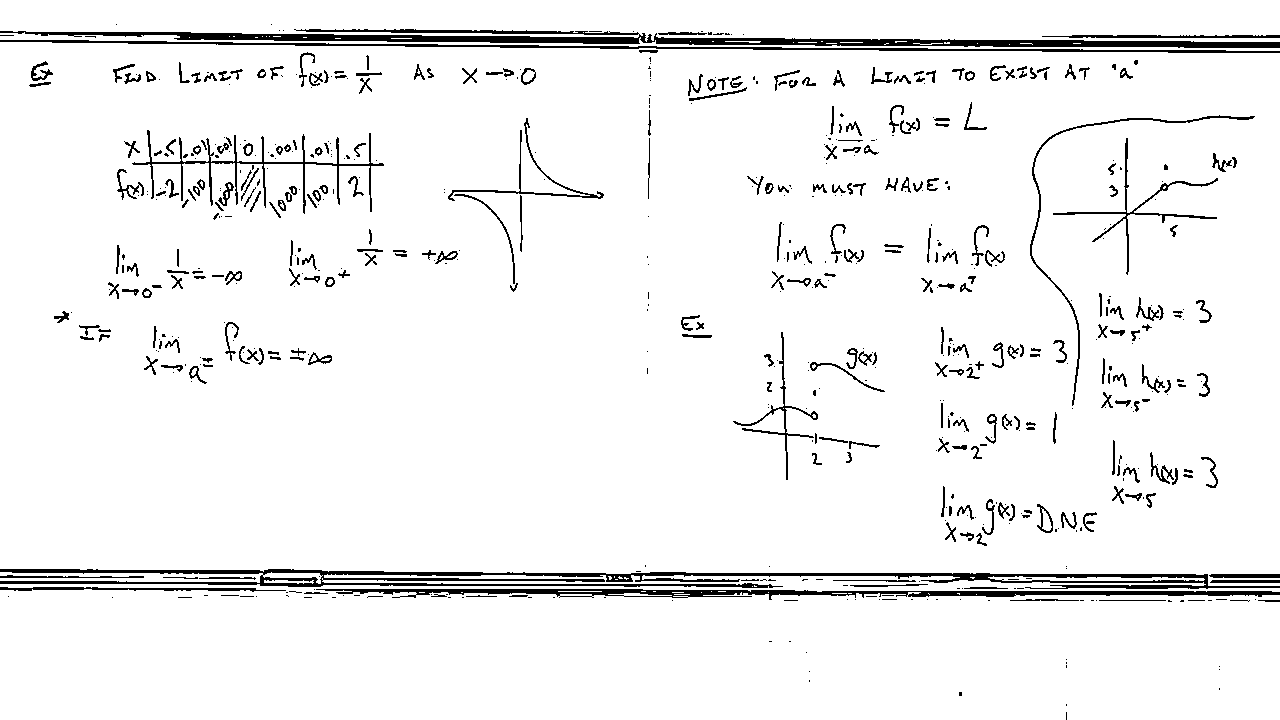 Ex FIND LIMIT OF f(x) = 1/x AS x → 0
x | -.5 | -.01 | -.001 | 0 | .001 | .01 | .5
f(x) | -2 | -100 | -1000 | | 1000 | 100 | 2
lim x→0⁻ 1/x = -∞ lim x→0⁺ 1/x = +∞
* IF lim x→a f(x) = ±∞
NOTE: FOR A LIMIT TO EXIST AT "a"
lim x→a f(x) = L
YOU MUST HAVE:
lim x→a⁻ f(x) = lim x→a⁺ f(x)
5
3
h(x)
5
lim x→5⁺ h(x) = 3
lim x→5⁻ h(x) = 3
lim x→5 h(x) = 3
Ex
3
2
1
g(x)
2 3
lim x→2⁺ g(x) = 3
lim x→2⁻ g(x) = 1
lim x→2 g(x) = D.N.E